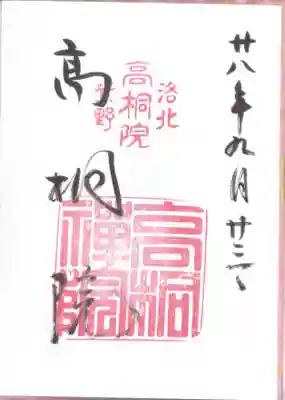 廿八年九月廿三日
洛北
高桐院
紫野
高桐院
高桐
禪院